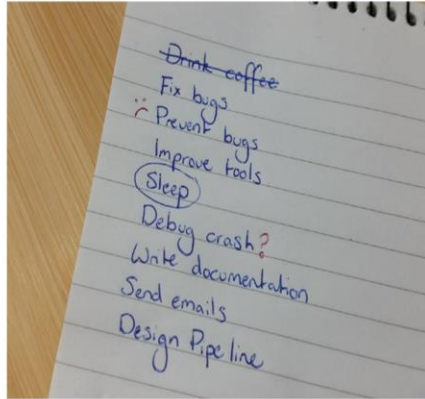 Drink coffee
Fix bugs
Prevent bugs
Improve tools
Sleep
Debug crash?
Write documentation
Send emails
Design Pipeline